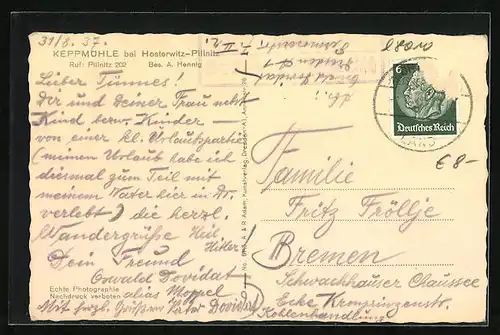 31/8. 37.
KEPPMÜHLE bei Hosterwitz-Pillnitz
Ruf: Pillnitz 202 Bes. A. Hennig
Lieber Tünnes!
Dir und Deiner Frau nebst
Kind bezw. Kinder –
von einer kl. Urlaubspartie
(meinen Urlaub habe ich
diesmal zum Teil mit
meinem Vater hier in Dr.
verlebt) die herzl.
Wandergrüße Heil
Hitler!
Dein Freund
Oswald Dovidat
alias Moppel
Echte Photographie
Nachdruck verboten
Mit herzl. Grüßen Vater Dovidat
6
Deutsches Reich
LAND
€ 8-
Familie
Fritz Frölije
Bremen
Schwachhauser Chaussee
Ecke
Kohlenhandlung